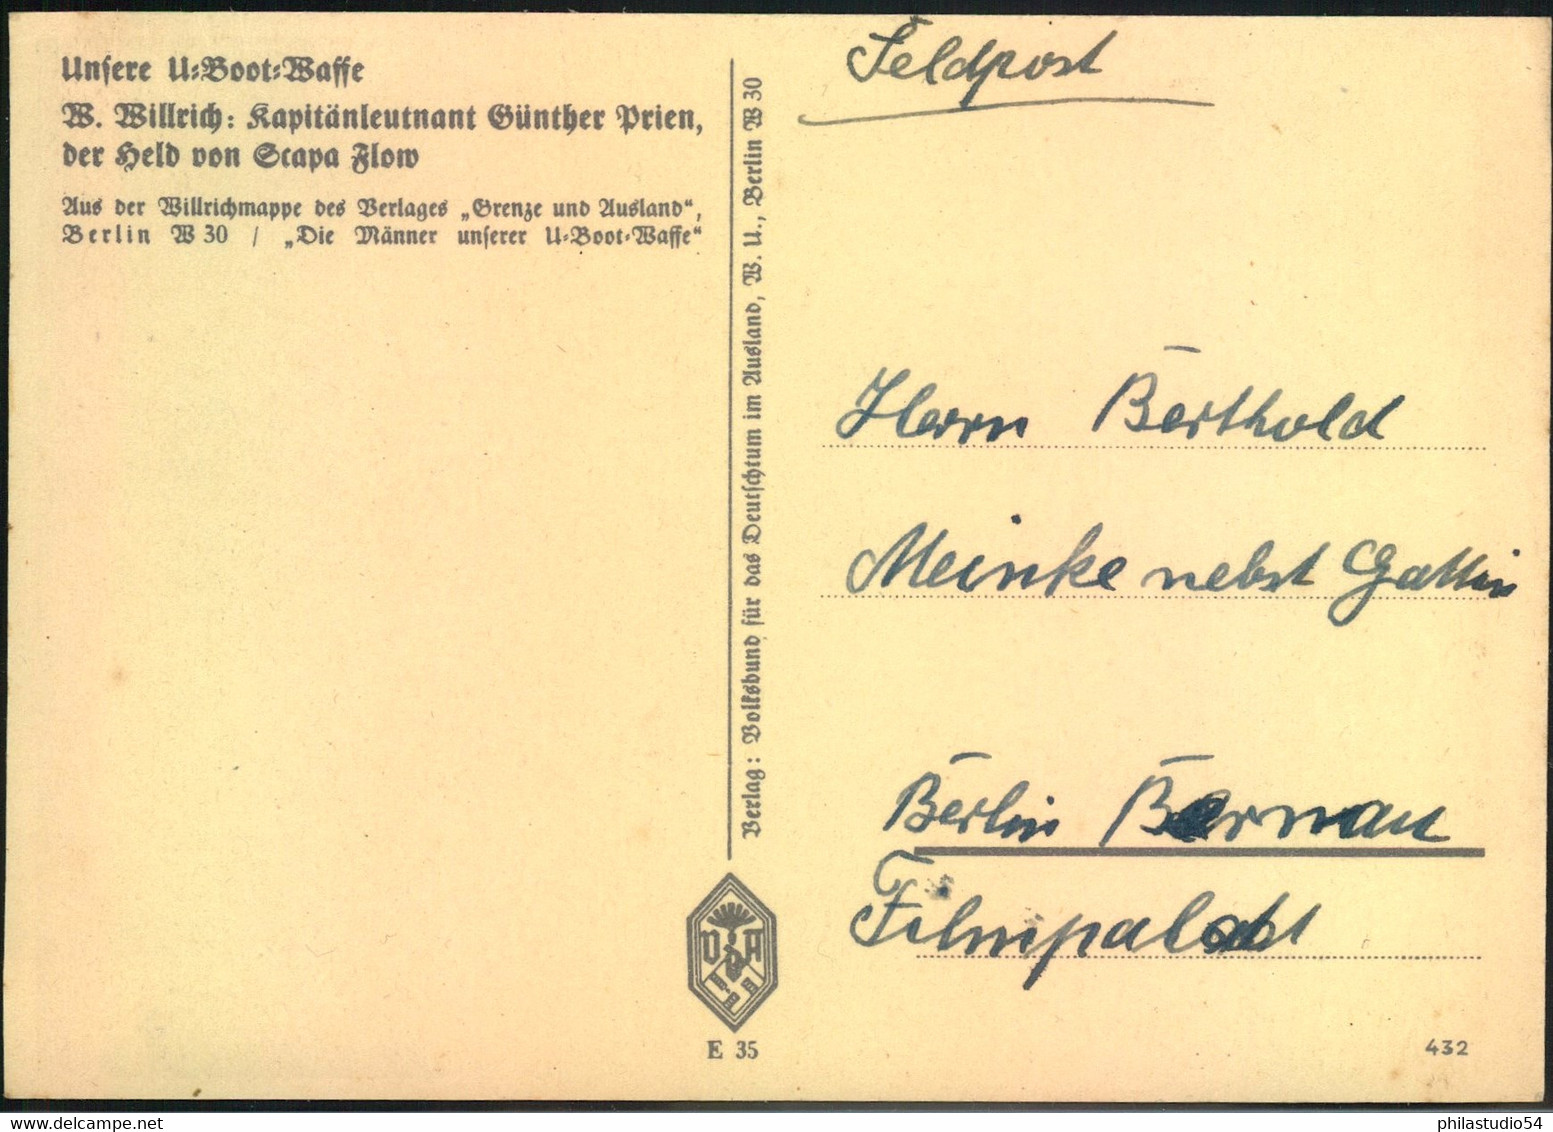 Unsere U-Boot-Waffe
W. Willrich: Kapitänleutnant Günther Prien,
der Held von Scapa Flow
Aus der Willrichmappe des Verlages „Grenze und Ausland“,
Berlin W 30 / „Die Männer unserer U-Boot-Waffe“
Verlag: Volksbund für das Deutschtum im Ausland, W. U., Berlin W 30
VDA
E 35
Feldpost
Herrn Berthold
Meinke nebst Gattin
Berlin Bernau
Filmpalast
432
philastudio54